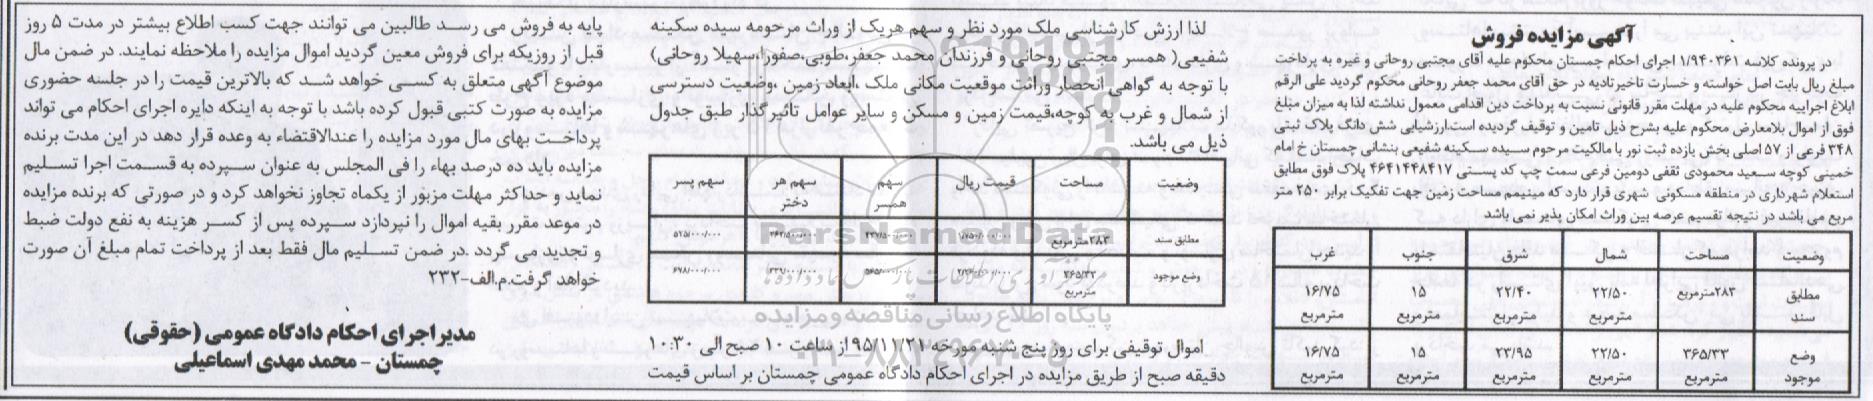 آگهی مزایده فروش
در پرونده کلاسه ۱/۹۴۰۳۶۱ اجرای احکام چمستان محکوم علیه آقای مجتبی روحانی و غیره به پرداخت
مبلغ ریال بابت اصل خواسته و خسارت تاخیرتادیه در حق آقای سید جعفر روحانی محکوم گردید علی الرقم
ابلاغ اجراییه محکوم علیه در مهلت مقرر قانونی نسبت به پرداخت دین اقدامی معمول نداشته لذا به میزان مبلغ
فوق از اموال بلامعارض محکوم علیه بشرح ذیل تامین و توقیف گردیده است ارزشیابی شش دانگ پلاک ثبتی
۳۴۸ فرعی از ۵۷ اصلی بخش یازده ثبت نور با مالکیت مرحوم سیده سکینه شفیعی بنشانی چمستان خ امام
خمینی کوچه سعید محمودی ثقفی دومین فرعی سمت چپ کد پستی ۴۶۴۱۴۴۸۴۱۷ پلاک فوق مطابق
استعلام شهرداری در منطقه مسکونی شهری قرار دارد که مینیمم مساحت زمین جهت تفکیک برابر ۲۵۰ متر
مربع می باشد در نتیجه تقسیم عرصه بین وراث امکان پذیر نمی باشد
وضعیت مساحت شمال شرق جنوب غرب
مطابق سند مترمربع ۲۲/۵۰ مترمربع ۲۲/۴۰ مترمربع ۱۵ مترمربع ۱۶/۷۵ مترمربع
وضع موجود ۳۶۵/۳۲ مترمربع ۲۲/۵۰ مترمربع ۲۳/۹۵ مترمربع ۱۵ مترمربع ۱۶/۷۵ مترمربع
لذا ارزش کارشناسی ملک مورد نظر و سهم هریک از وراث مرحومه سیده سکینه
شفیعی( همسر مجتبی روحانی و فرزندان محمد،جعفر،طوبی،صفورا،سهیلا روحانی)
با توجه به گواهی انحصار وراثت موقعیت مکانی ملک ،ابعاد زمین ،وضعیت دسترسی
از شمال و غرب به کوچه،قیمت زمین و مسکن و سایر عوامل تاثیرگذار طبق جدول
ذیل می باشد.
وضعیت مساحت قیمت ریال سهم همسر سهم هر دختر سهم هر پسر
مطابق سند مترمربع
وضع موجود ۳۶۵/۳۲ مترمربع
ParsNamadData
پایگاه اطلاع رسانی مناقصه و مزایده
اموال توقیفی برای روز پنج شنبه مورخه ۹۵/۱۱/۲۱ از ساعت ۱۰ صبح الی ۱۰:۳۰
دقیقه صبح از طریق مزایده در اجرای احکام دادگاه عمومی چمستان بر اساس قیمت
پایه به فروش می رسد طالبین می توانند جهت کسب اطلاع بیشتر در مدت ۵ روز
قبل از روزیکه برای فروش معین گردید اموال مزایده را ملاحظه نمایند. در ضمن مال
موضوع آگهی متعلق به کسی خواهد شد که بالاترین قیمت را در جلسه حضوری
مزایده به صورت کتبی قبول کرده باشد با توجه به اینکه دایره اجرای احکام می تواند
پرداخت بهای مال مورد مزایده را عندالاقتضاء به وعده قرار دهد در این مدت برنده
مزایده باید ده درصد بهاء را فی المجلس به عنوان سپرده به قسمت اجرا تسلیم
نماید و حداکثر مهلت مزبور از یکماه تجاوز نخواهد کرد و در صورتی که برنده مزایده
در موعد مقرر بقیه اموال را نپردازد سپرده پس از کسر هزینه به نفع دولت ضبط
و تجدید می گردد در ضمن تسلیم مال فقط بعد از پرداخت تمام مبلغ آن صورت
خواهد گرفت.م.الف-۲۳۲
مدیر اجرای احکام دادگاه عمومی (حقوقی)
چمستان – محمد مهدی اسماعیلی